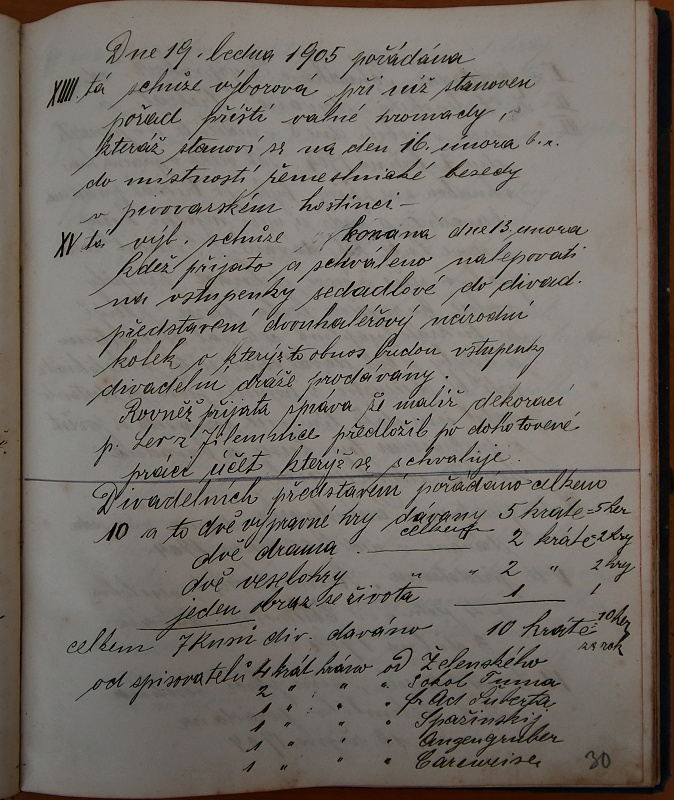 Dne 19. ledna 1905 pořádána
XIIII tá schůze výborová při níž stanoven
pořad příští valné hromady,
kteráž stanoví se na den 16. února t.r.
do místností řemeslnické besedy
v pivovarském hostinci –
XV tá výb. schůze konaná dne 13. února
kdež přijato a schváleno nalepovati
na vstupenky sedadlové do divad.
představení dvouhaléřový národní
kolek o kterýžto obnos budou vstupenky
divadeln dráže prodávány.
Rovněž přijata zpráva že malíř dekorací
p. Ler z Jilemnice předložil po dohotovené
práci účet kterýž se schvaluje.
Divadelních představení pořádáno celkem
10 a to dvě výpravné hry dávany 5 kráte = 5 her
dvě drama celkem 2 kráte = 2 hry
dvě veselohry " " 2 " 2 hry
jeden obraz ze života 1 1
celkem 7 kusů div. dáváno 10 kráte 10 her
za rok
od spisovatelů 4 krát hráno od Želenského
2 " " " Sokol Tuma
1 " " " fr Ad Šuberta
1 " " " Špažinskij
1 " " " Angengruber
1 " " "
30